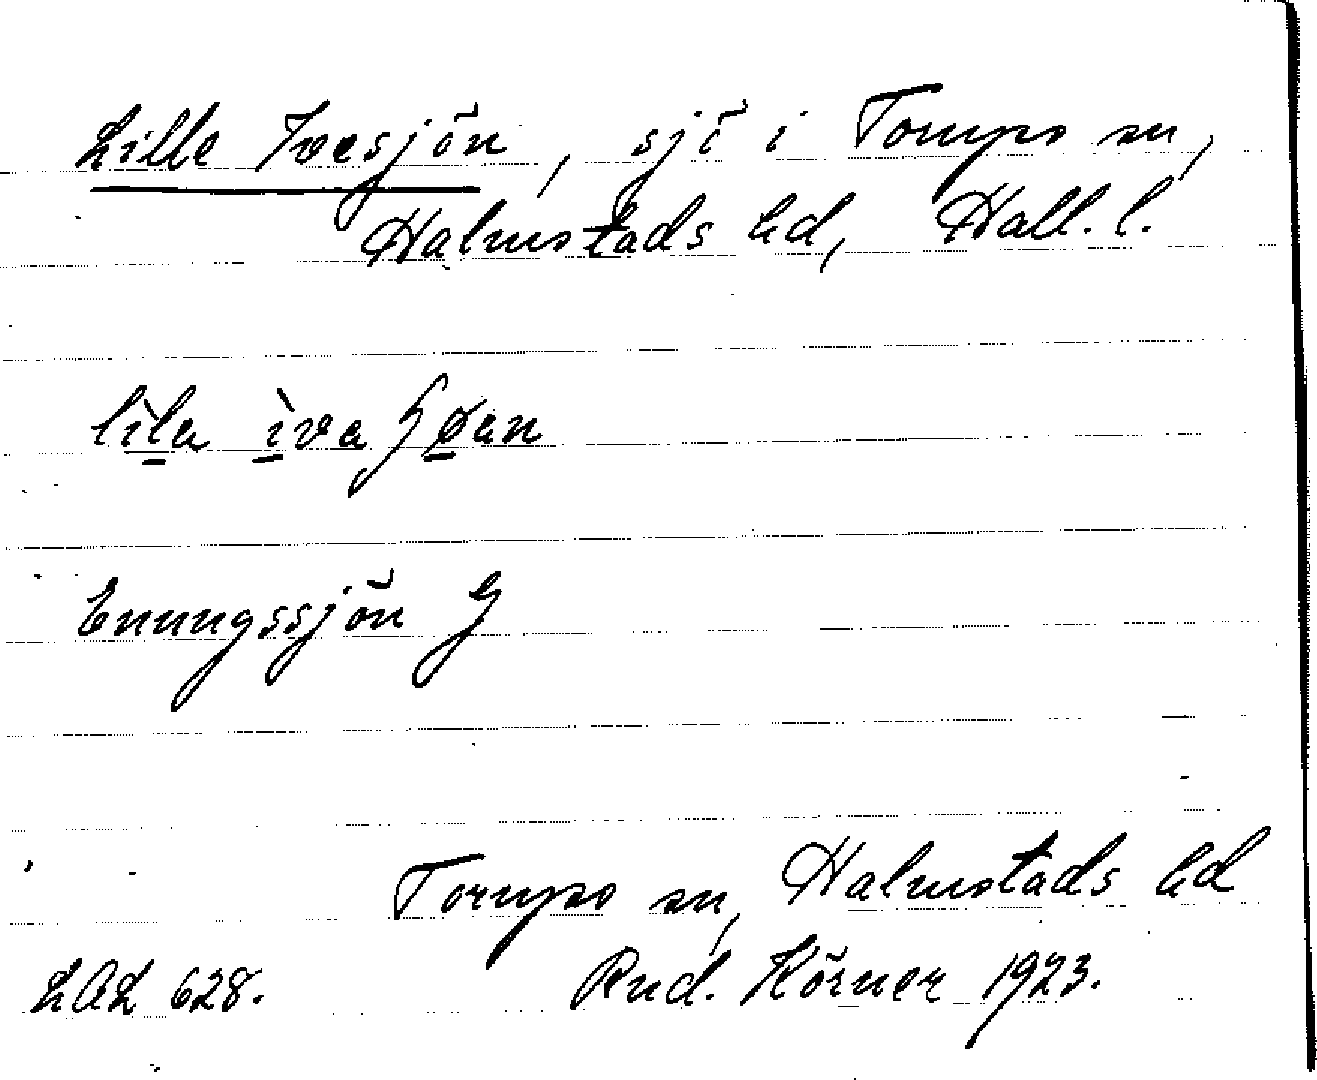 Lille Ivesjön, sjö i Torups sn,
Halmstads hd, Hall. l.
lìla ìva ʃøan
Enungssjön G
Torups sn, Halmstads hd
LAL 628. Rud. Körner 1923.